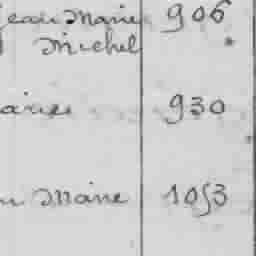 Jean Marie 906
Michel
aries 930
Marie 1053